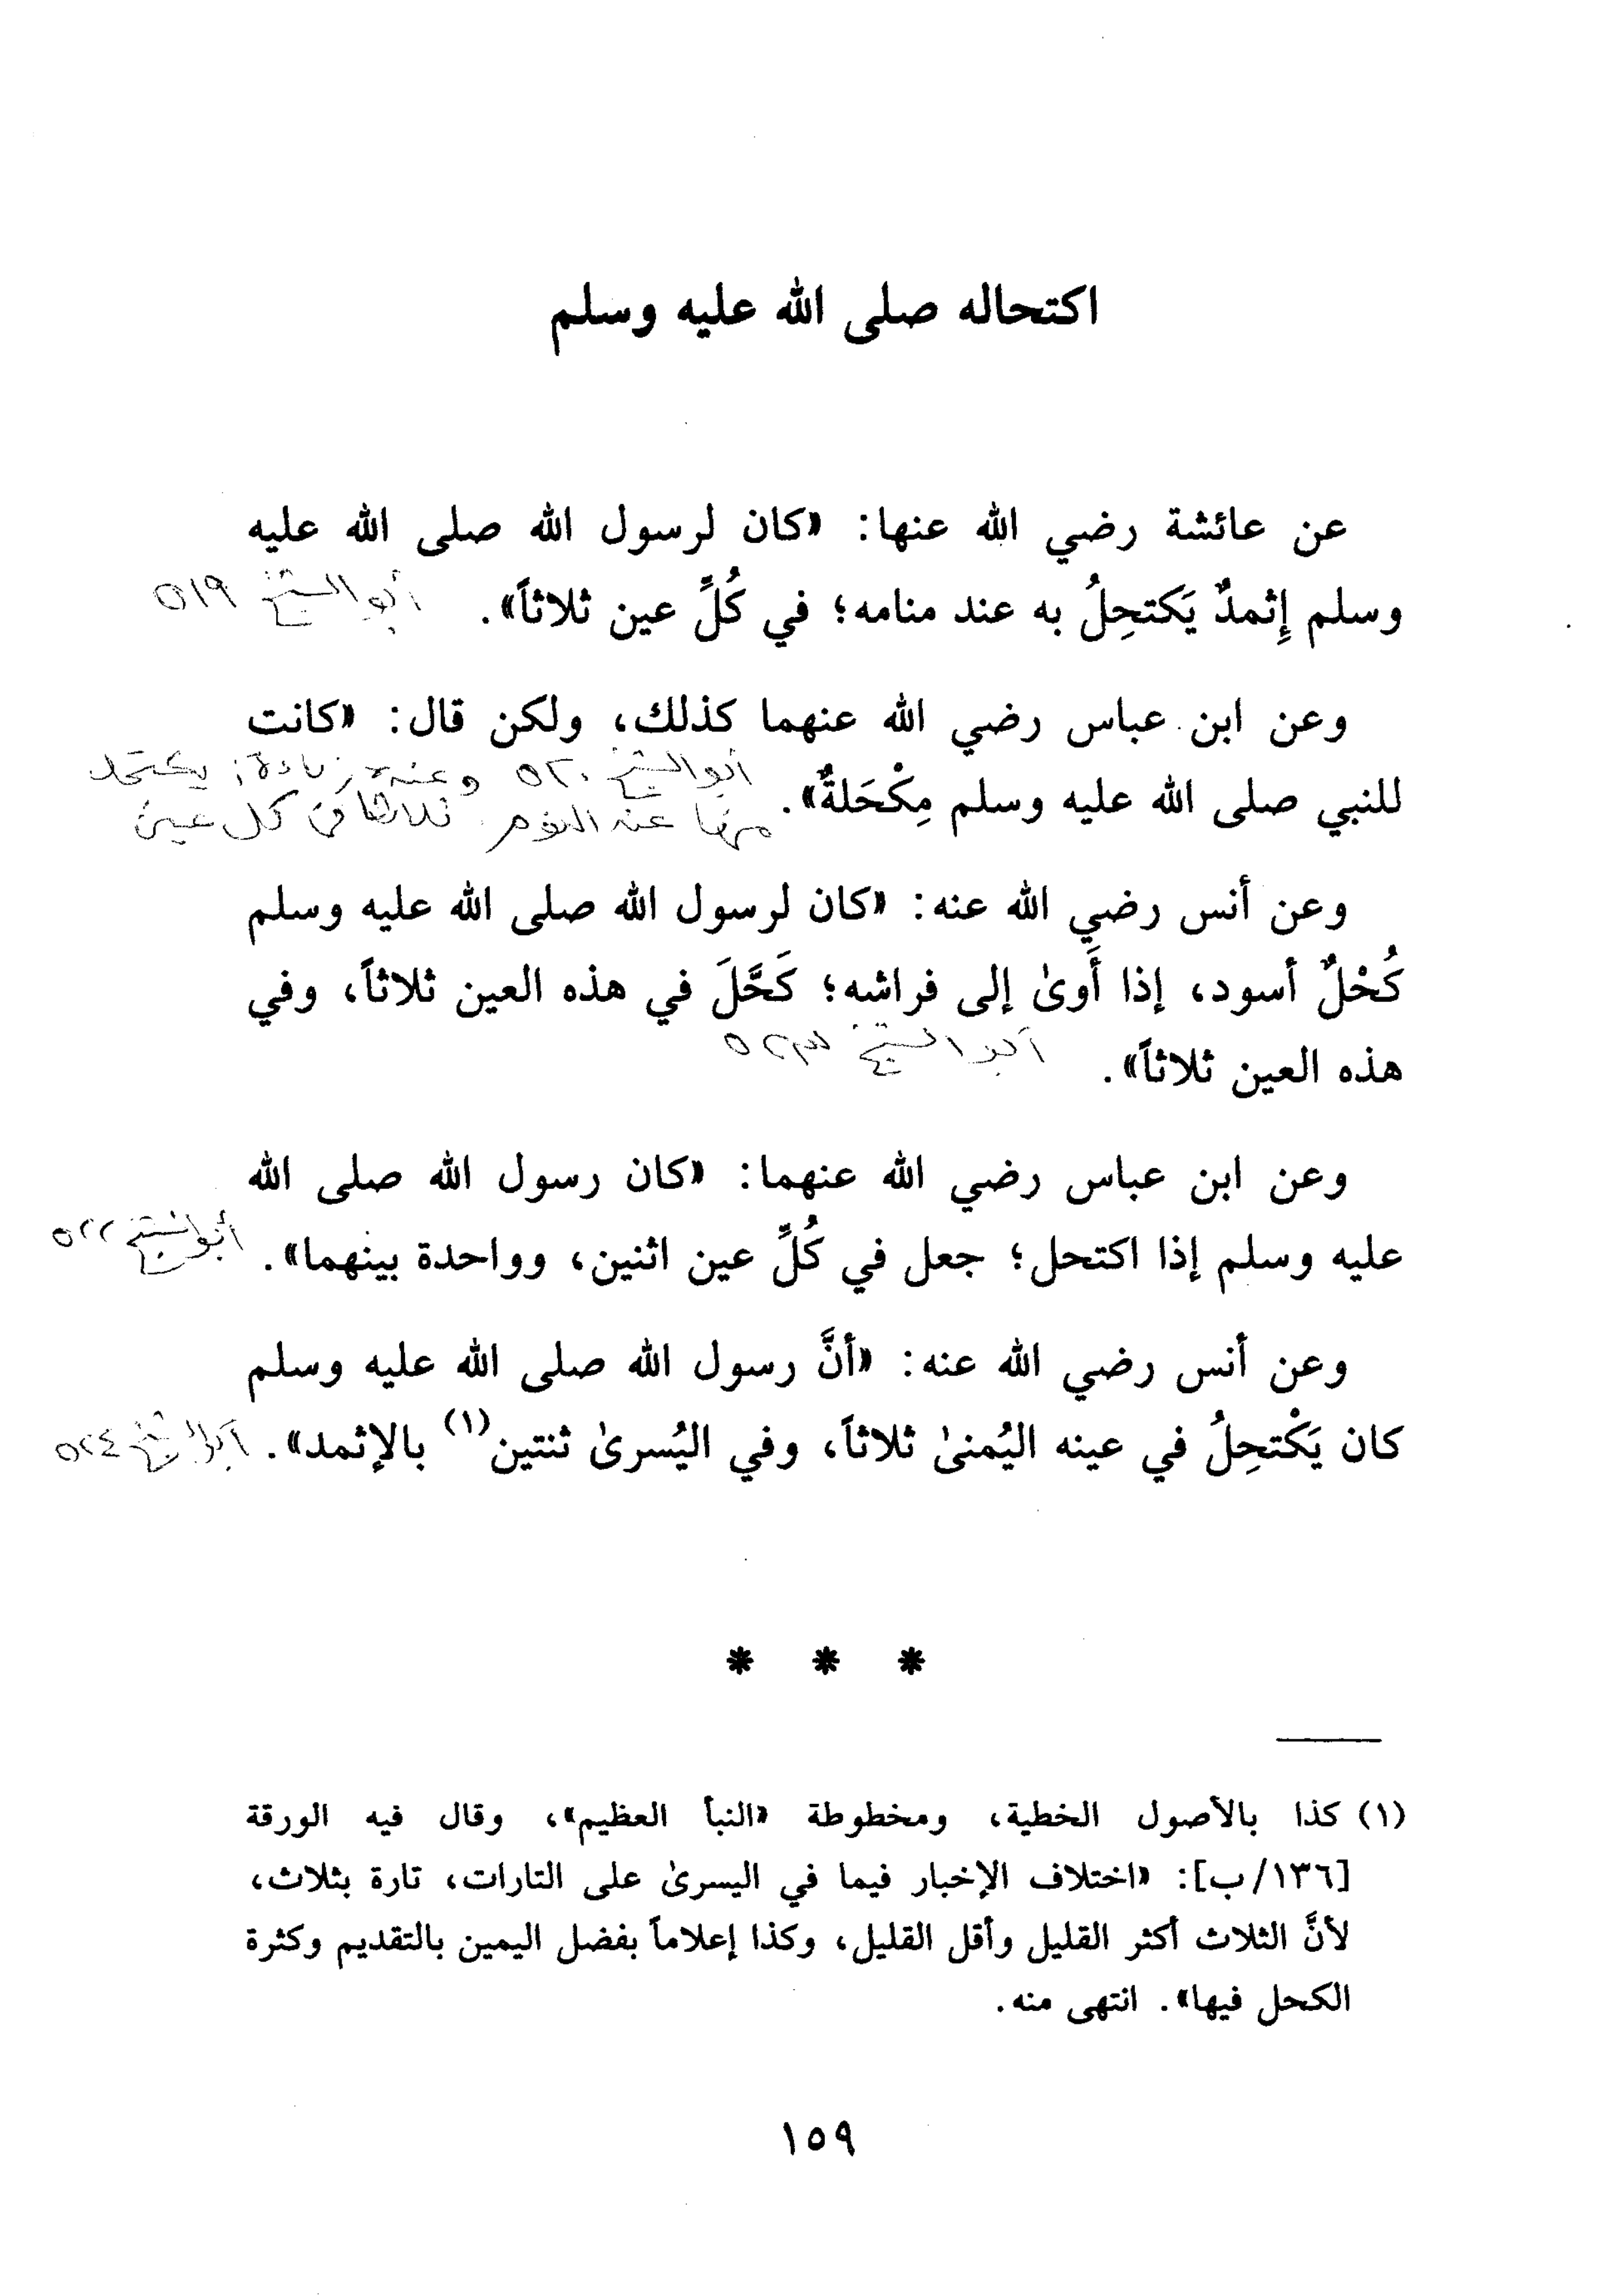 اكتحاله صلى الله عليه وسلم
عن عائشة رضي الله عنها: «كان لرسول الله صلى الله عليه
وسلم إِثمدٌ يَكتحِلُ به عند منامه؛ في كُلِّ عين ثلاثاً».
أبو الشيخ ٥١٩
وعن ابن عباس رضي الله عنهما كذلك، ولكن قال: «كانت
للنبي صلى الله عليه وسلم مِكْحَلةٌ».
أبو الشيخ ٥٢٠ وعنده زيادة: يكتحل
منها عند النوم ثلاثا في كل عين
وعن أنس رضي الله عنه: «كان لرسول الله صلى الله عليه وسلم
كُحْلٌ أسود، إذا أَوىٰ إلى فراشه؛ كَحَّلَ في هذه العين ثلاثاً، وفي
هذه العين ثلاثاً».
أبو الشيخ ٥٢٣
وعن ابن عباس رضي الله عنهما: «كان رسول الله صلى الله
عليه وسلم إذا اكتحل؛ جعل في كُلِّ عين اثنين، وواحدة بينهما».
أبو الشيخ ٥٢٢
وعن أنس رضي الله عنه: «أنَّ رسول الله صلى الله عليه وسلم
كان يَكْتحِلُ في عينه اليُمنىٰ ثلاثاً، وفي اليُسرىٰ ثنتين(١) بالإثمد».
أبو الشيخ ٥٢٤
* * *
(١) كذا بالأصول الخطية، ومخطوطة «النبأ العظيم»، وقال فيه الورقة
[١٣٦/ب]: «اختلاف الإخبار فيما في اليسرىٰ على التارات، تارة بثلاث،
لأنَّ الثلاث أكثر القليل وأقل القليل، وكذا إعلاماً بفضل اليمين بالتقديم وكثرة
الكحل فيها». انتهى منه.
١٥٩